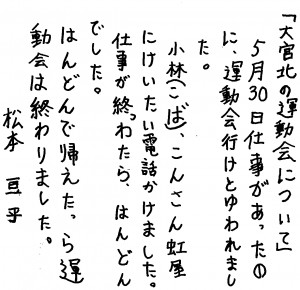 「大宮北の運動会について」
5月30日仕事があったの
に、運動会行けとゆわれまし
た。
小林(こば)、こんさん虹屋
にけいたい電話かけました。
仕事が終ったら、はんどん
でした。
はんどんで帰えたっら運
動会は終わりました。
松本 亘乎